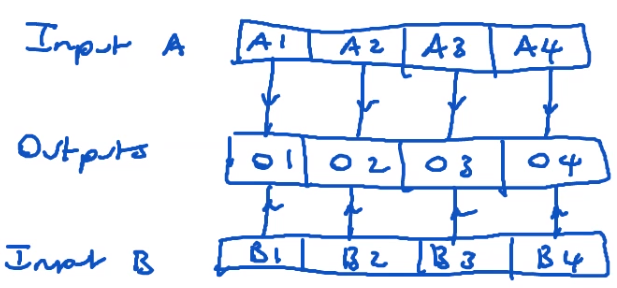 Input A A1 A2 A3 A4
Outputs O1 O2 O3 O4
Input B B1 B2 B3 B4